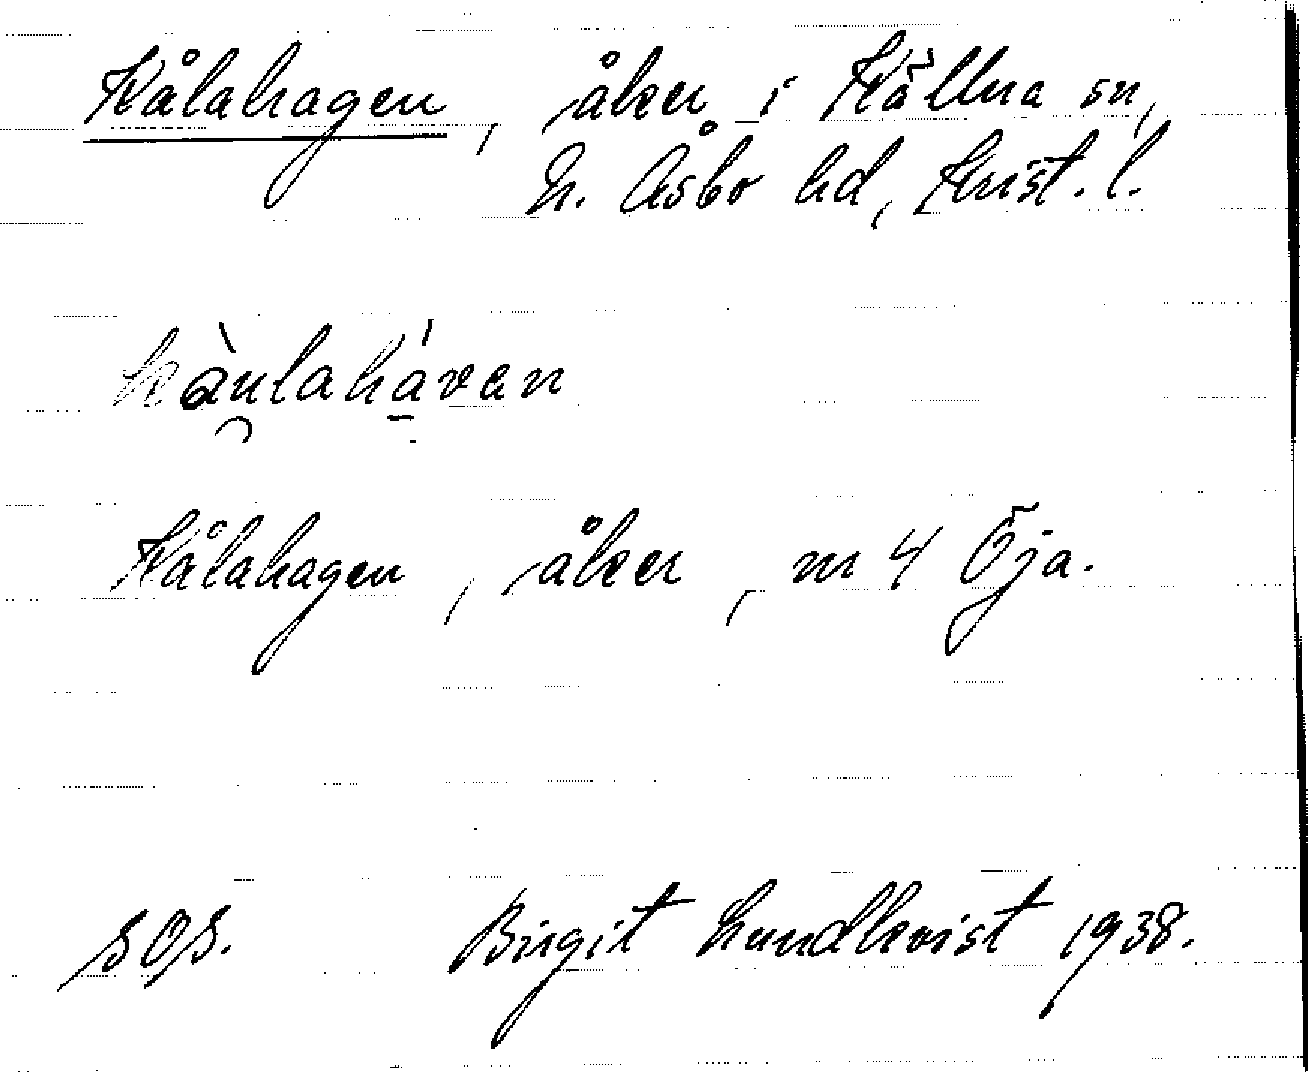 Kålahagen, åker i Källna sn,
N. Åsbo hd, Krist. l.
kàulahávan
Kålahagen, åker, nr 4 Öja.
SOS. Birgit Lundkvist 1938.